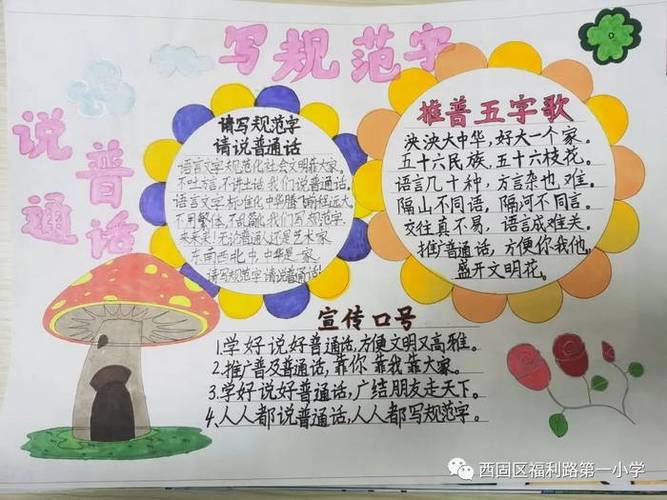 写规范字
说普通话
请写规范字
请说普通话
语言文字规范化社会文明靠大家。
不吐方言,不讲土话我们说普通话。
语言文字标准化中华腾飞前程远大。
不用繁体,不乱简化我们写规范字.
未来来!无论普通人还是艺术家
东南西北中,中华是一家.
请写规范字请说普通话!
推普五字歌
泱泱大中华,好大一个家。
五十六民族,五十六枝花。
语言几十种,方言杂也难。
隔山不同语,隔河不同言。
交往真不易,语言成难关。
推广普通话,方便你我他。
盛开文明花。
宣传口号
1.学好说好普通话,方便文明又高雅。
2.推广普及普通话,靠你靠我靠大家。
3.学好说好普通话,广结朋友走天下。
4、人人都说普通话,人人都写规范字。
西固区福利路第一小学